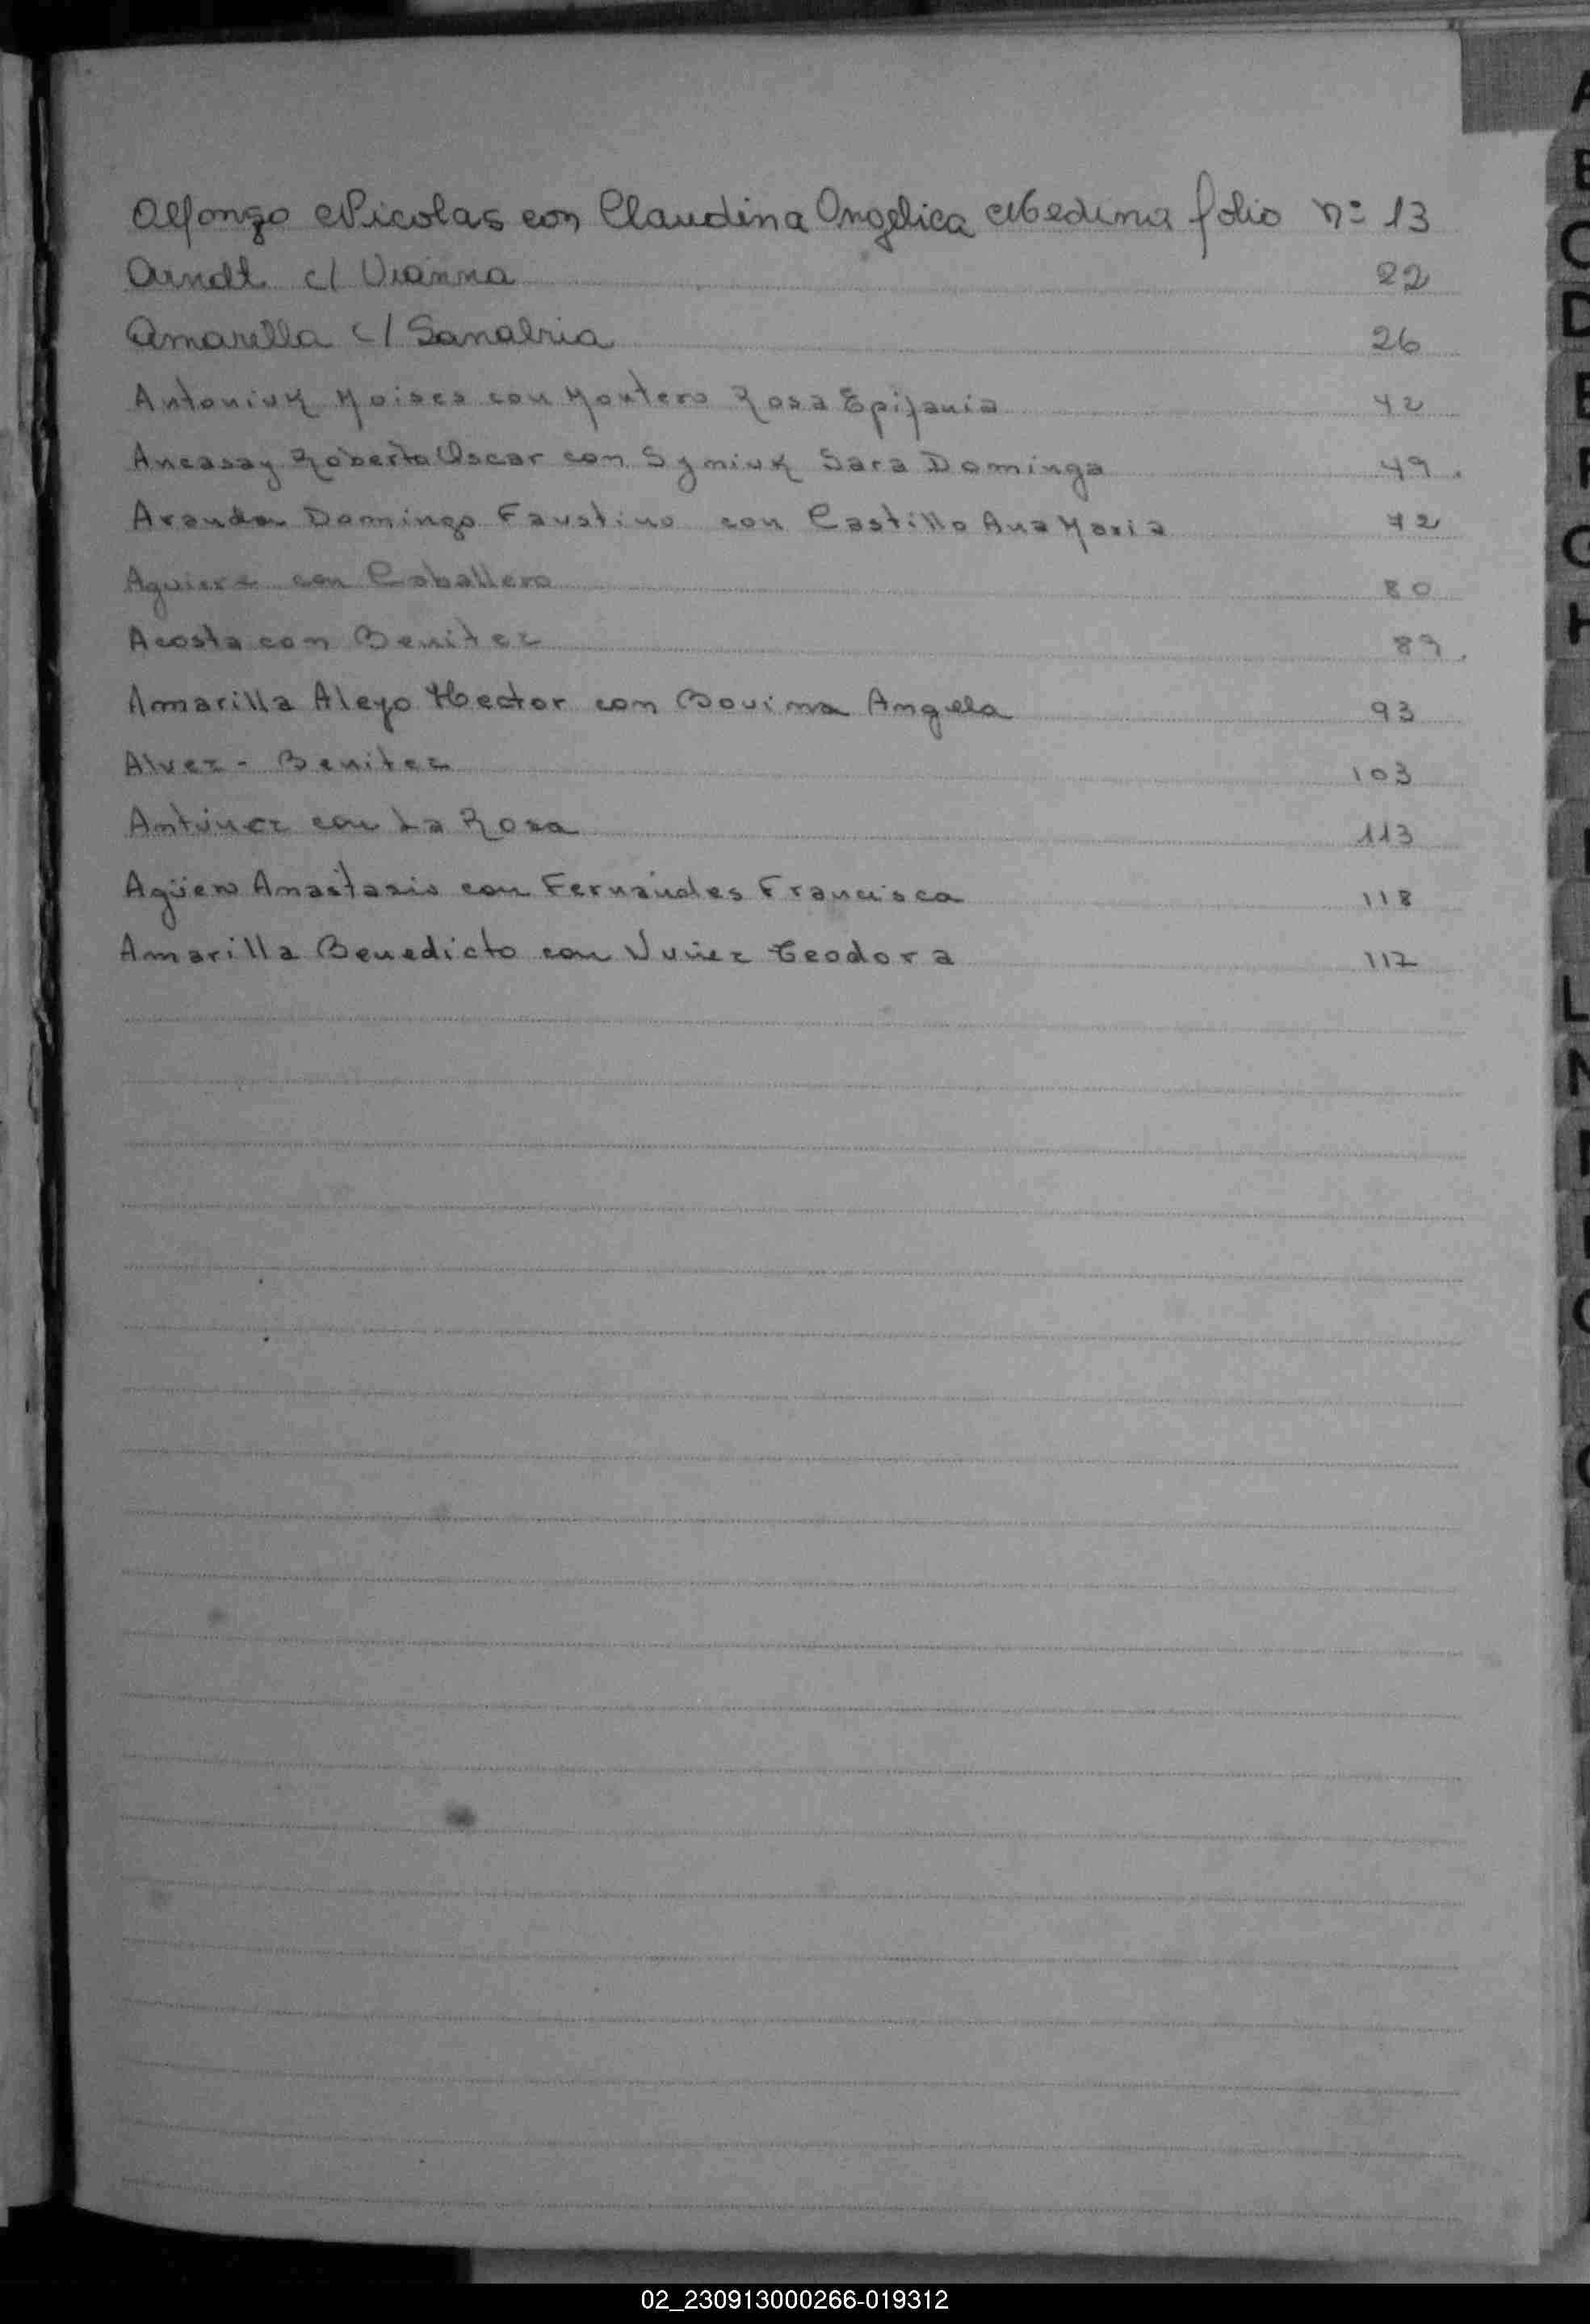 Alfonzo Nicolas con Claudina Angelica Medina folio nº 13
Arndt c/ Vianna 22
Amarilla c/ Sanabria 26
Antoniuk Moises con Montero Rosa Epifania 42
Ancasay Roberto Oscar con Syniuk Sara Dominga 49.
Aranda Domingo Faustino con Castillo Ana Maria 72
Aguiere con Caballero 80
Acosta con Benitez 89.
Amarilla Aleyo Hector con Bovima Angela 93
Alvez - Benitez 103
Antúnez con La Rosa 113
Agüero Anastasio con Fernandes Francisca 118
Amarilla Benedicto con Nuñez Teodora 117
A
B
C
D
E
F
G
H
I
L
N
02_230913000266-019312